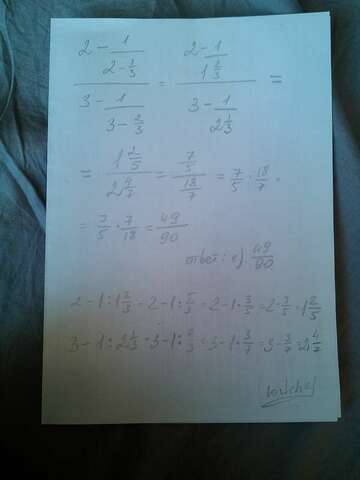 2 - 1/(2 - 1/3) / 3 - 1/(3 - 2/3) = 2 - 1/(1 2/3) / 3 - 1/(2 1/3) =
= 1 2/5 / 2 4/7 = 7/5 / 18/7 = 7/5 : 18/7 =
= 7/5 · 7/18 = 49/90
ответ: e) 49/90
2 - 1 : 1 2/3 = 2 - 1 : 5/3 = 2 - 1 · 3/5 = 2 - 3/5 = 1 2/5
3 - 1 : 2 1/3 = 3 - 1 : 7/3 = 3 - 1 · 3/7 = 3 - 3/7 = 2 4/7